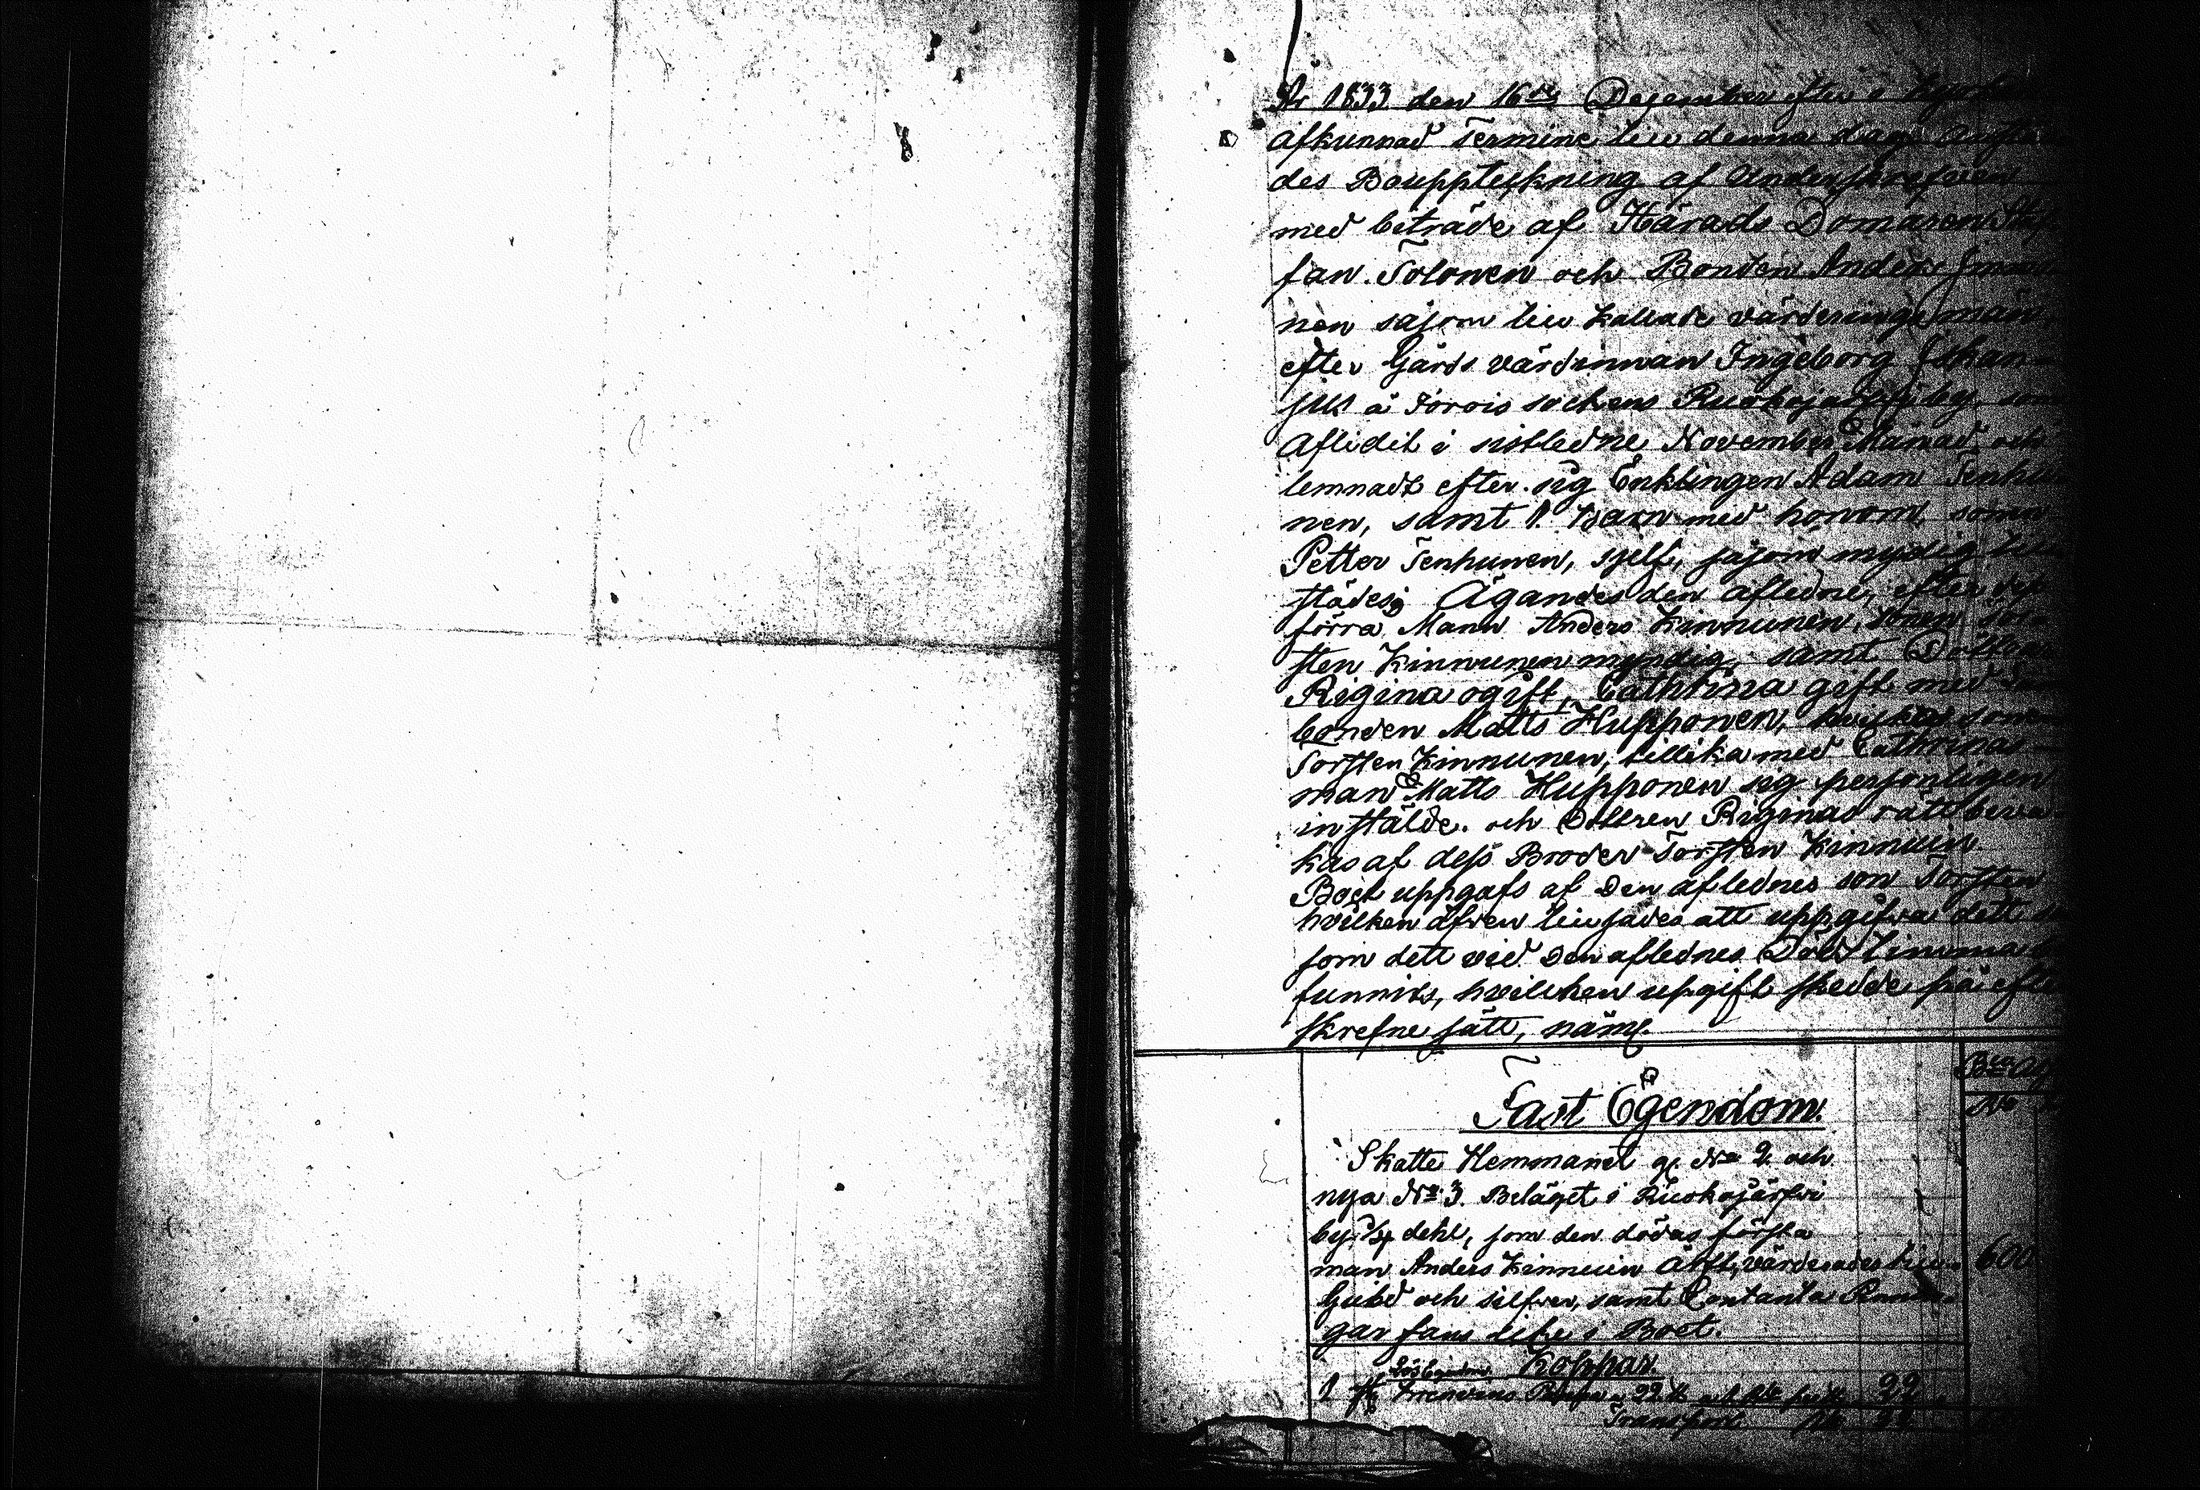 År 1833 den 16de December efter i Kyrkan
afkunnad Termine till denna dag
des Bouppteckning af Underskrefven
med beträde af Härads Domaren Staf
fan Tolonen och Bonden Anders Immo
nen såsom till kallade värderings män
efter Gårds värdinnan Ingeborg
jus å Jorois sochens Ruokojärfvi by som
Aflidit i sistledne November Månad och
lemnadt efter sig Enklingen Adam Tenhu
nen, samt 1 Barn med honom, sonen
Petter Tenhunen, sjelf, såsom mydig till
städes; Ägandes den afledne, efter dess
förra Mann Anders Kinnunen, sonen Tor
sten Kinnunen myndig, samt Döttrar
Rigina ogift, Cathrina gift med
bonden Matts Hupponen, hvilka sonen
Torsten Kinnunen, tillika med Cathrinas
man Matts Hupponen sig personligen
instälde. och Dottren Riginas rätt beva
kas af dess Broder Torsten Kinnuin
Boet uppgafs af den aflednes son Torsten
hvilken äfven tillsades att uppgifva dett så
som dett vid den aflednes Död timma be
funnits, hvilcken upgift skedde på efter
skrefne sätt, näml.
Bco Ass
Fast Egendom.
Skatte Hemmanet g. No 2 och
nya No 3. Beläget i Ruokojärfvi
by dehl, som den dödas första
man Anders Kinnuin Ärft, värderades till 600
Guld och silfver, samt Contanta Pennin
gar fans icke i Boet.
Lös Egendom Koppar
1 st Brenvins Panna 22 22
Transport 22